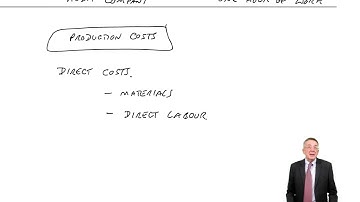 AUDIT COMPANY ONE HOUR OF WORK
PRODUCTION COSTS
DIRECT COSTS.
- MATERIALS
- DIRECT LABOUR